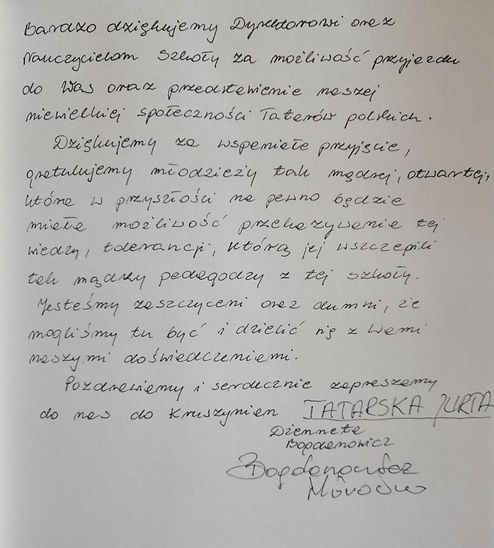 Bardzo dziękujemy Dyrektorowi oraz
Nauczycielom Szkoły za możliwość przyjazdu
do Was oraz przedstawienie naszej
niewielkiej społeczności Tatarów polskich.
Dziękujemy za wspaniałe przyjęcie,
gratulujemy młodzieży tak mądrej, otwartej,
która w przyszłości na pewno będzie
miała możliwość przekazywania tej
wiedzy, tolerancji, którą jej wszczepili
tak mądrzy pedagodzy z tej szkoły.
Jesteśmy zaszczyceni oraz dumni, że
mogliśmy tu być i dzielić się z Wami
naszymi doświadczeniami.
Pozdrawiamy i serdecznie zapraszamy
do nas do Kruszynian TATARSKA JURTA
Dżenneta
Bogdanowicz
Bogdanowicz